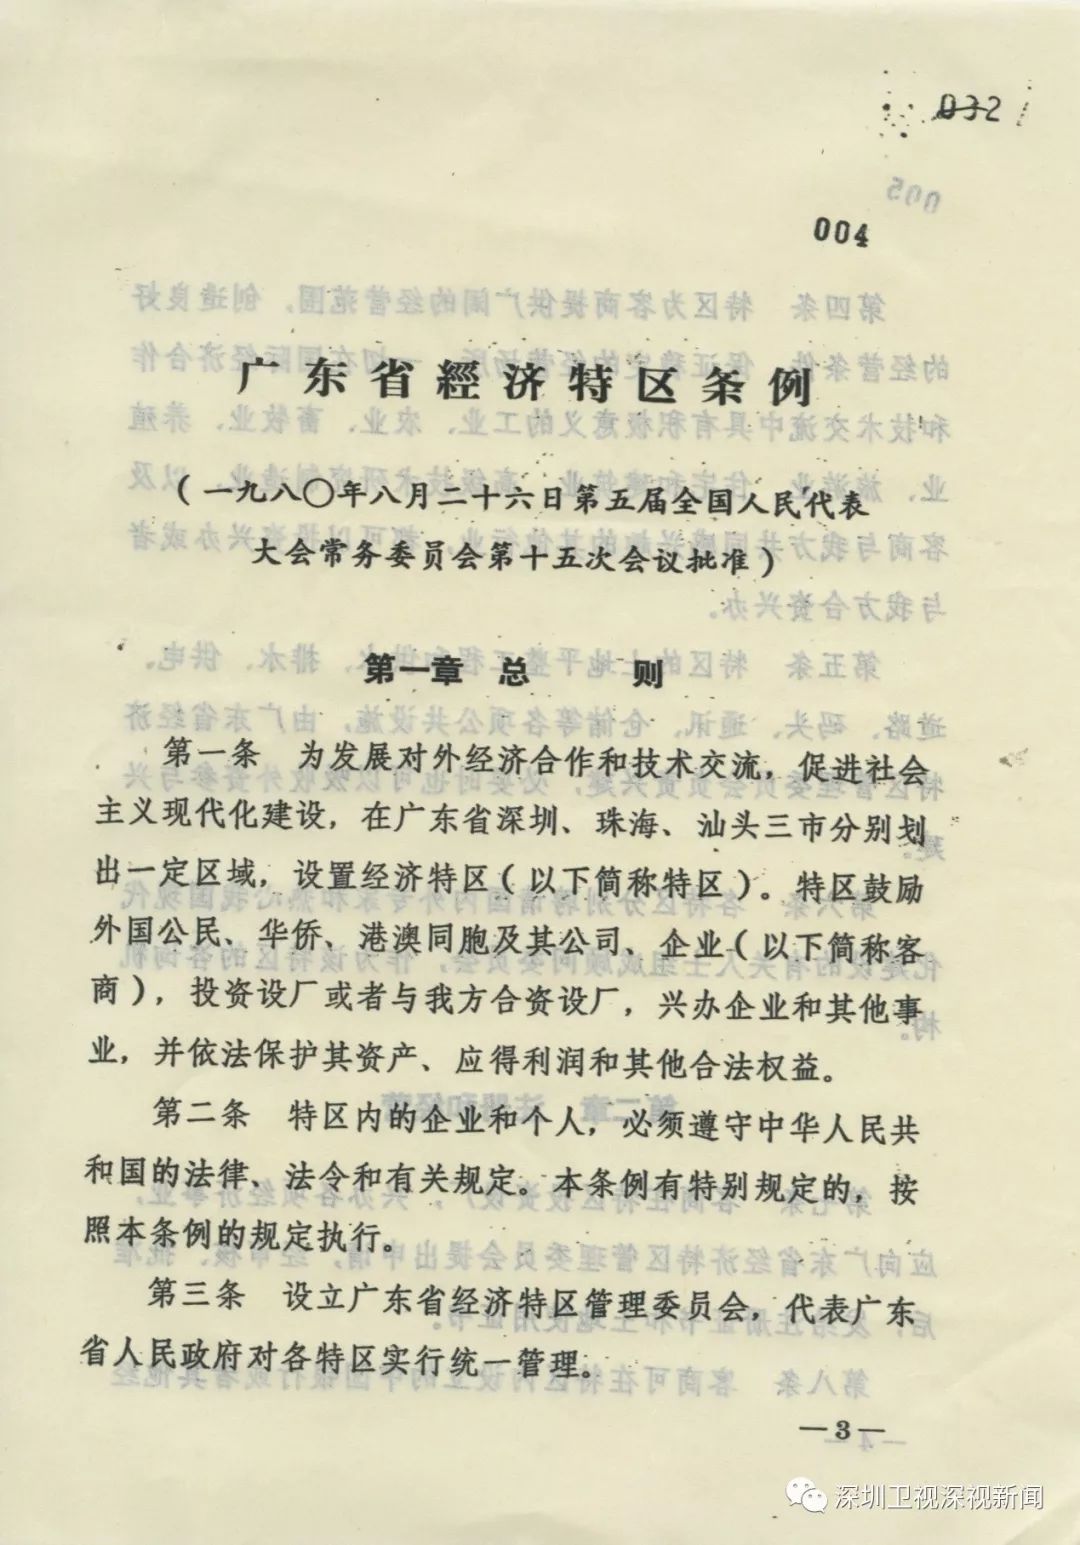 032
004
广东省經济特区条例
（一九八〇年八月二十六日第五届全国人民代表
大会常务委员会第十五次会议批准）
第一章 总 则
第一条 为发展对外经济合作和技术交流，促进社会
主义现代化建设，在广东省深圳、珠海、汕头三市分别划
出一定区域，设置经济特区（以下简称特区）。特区鼓励
外国公民、华侨、港澳同胞及其公司、企业（以下简称客
商），投资设厂或者与我方合资设厂，兴办企业和其他事
业，并依法保护其资产、应得利润和其他合法权益。
第二条 特区内的企业和个人，必须遵守中华人民共
和国的法律、法令和有关规定。本条例有特别规定的，按
照本条例的规定执行。
第三条 设立广东省经济特区管理委员会，代表广东
省人民政府对各特区实行统一管理。
—3—
深圳卫视深视新闻